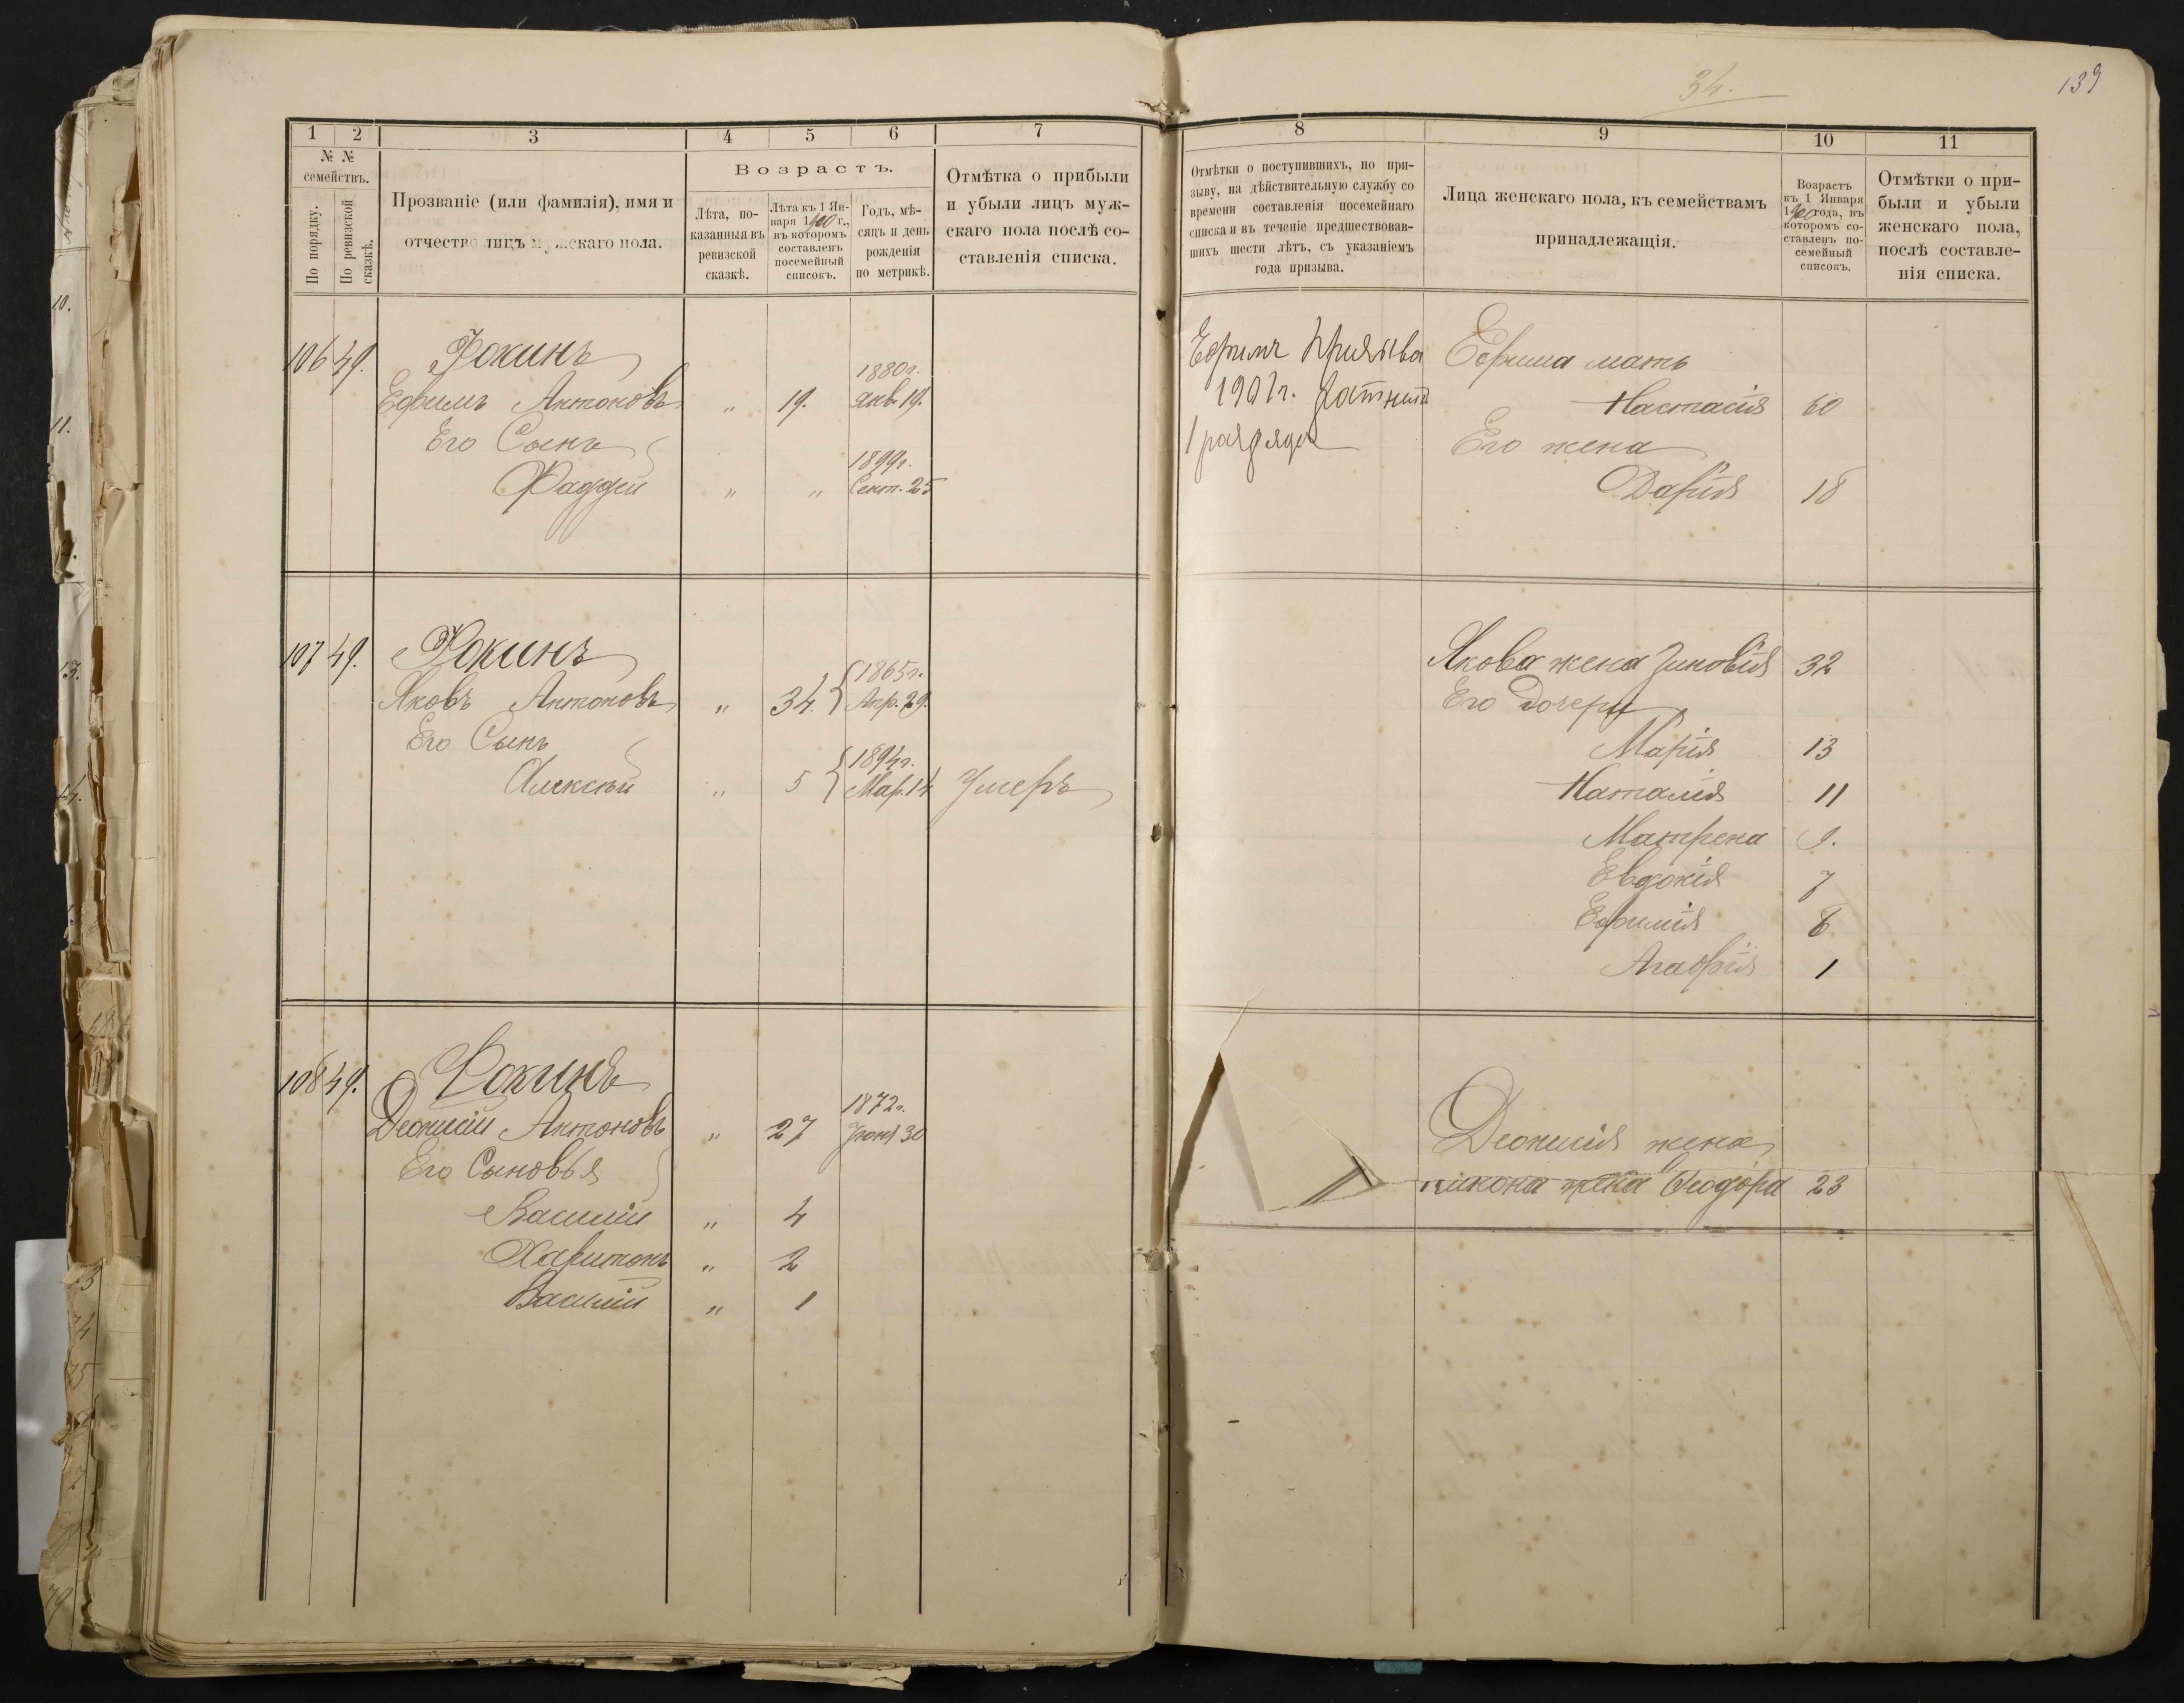 34.
139
1
2
3
4
5
6
7
№ №
семействъ.
По порядку.
По ревизской
сказкѣ.
Прозваніе (или фамилія), имя и
отчество лицъ мужскаго пола.
Возрастъ.
Лѣта, по-
казанныя въ
ревизской
сказкѣ.
Лѣта къ 1 Ян-
варя 1900 г.,
въ которомъ
составленъ
посемейный
списокъ.
Годъ, мѣ-
сяцъ и день
рожденія
по метрикѣ.
Отмѣтка о прибыли
и убыли лицъ муж-
скаго пола послѣ со-
ставленія списка.
106 49. Фокинъ
1880 г.
Ефимъ Антоновъ „ 19. Янв. 19.
Его Сынъ
1899 г.
Фаддей „ „ Сент. 25
107 49. Фокинъ
1865 г.
Яковъ Антоновъ „ 34. Апр. 29.
Его Сынъ
1894 г.
Алексѣй „ 5 Мар. 14 Умеръ
108 49. Фокинъ
1872 г.
Деонисій Антоновъ „ 27 Іюня 30
Его Сыновья
Василій „ 4
Харитонъ „ 2
Василій „ 1
8
9
10
11
Отмѣтки о поступившихъ, по при-
зыву, на дѣйствительную службу со
времени составленія посемейнаго
списка и въ теченіе предшествовав-
шихъ шести лѣтъ, съ указаніемъ
года призыва.
Лица женскаго пола, къ семействамъ
принадлежащія.
Возрастъ
къ 1 Января
1900 года, въ
которомъ со-
ставленъ по-
семейный
списокъ.
Отмѣтки о при-
были и убыли
женскаго пола,
послѣ составле-
нія списка.
Ефимъ призыва
1901 г. Ратникъ
1 разряда
Ефима мать
Настасія 60
Его жена
Дарія 18
Якова жена Зиновія 32
Его Дочери
Марія 13
Наталія 11
Матрена 9.
Евдокія 7
Ефимія 6
Агафія 1
Деонисія жена
Ѳеодора 23